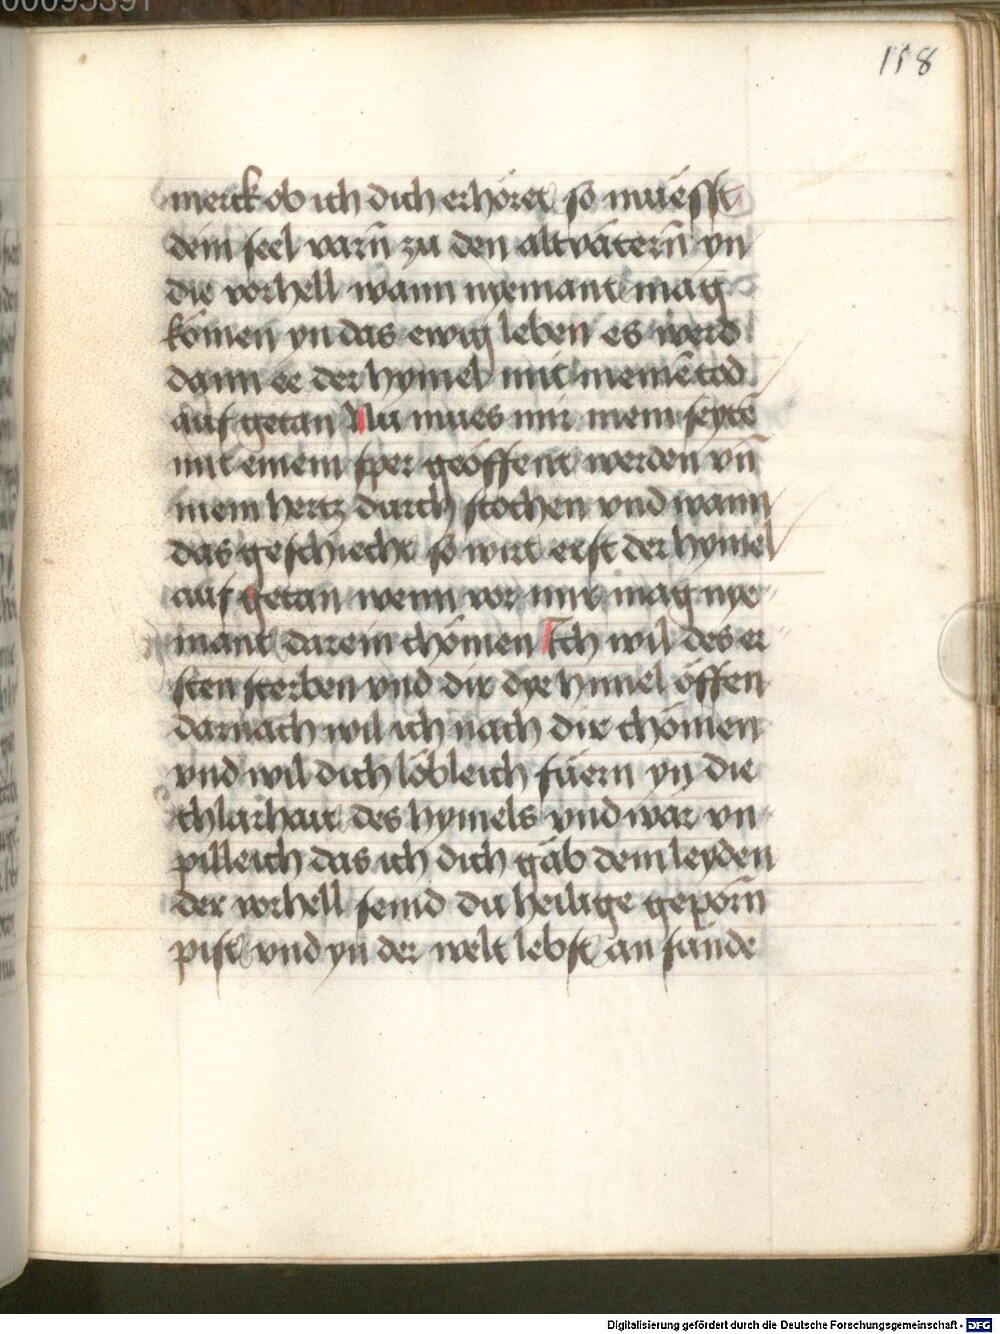 00095391
118
merck ob ich dich erhöret so müesst
dein seel varn̄ zu den altvätern̄ yn
die vorhell wann nyemant mag
kömen yn das ewig leben es werd
dann ee der hymel mit meinē tod
auf getan Nu mues mir mein seytē
mit einem sper geöffent werden vn̄
mein hertz durch stochen vnd wann
das geschiecht so wirt erst der hymel
auf getan wenn vor mir mag nye
mant darein chömen Ich wil des er
sten sterben vnd dir dye himel öffen
darnach wil ich nach dir chömen
vnd wil dich lobleich füern yn die
chlarhait des hymels vnd war vn
pilleich das ich dich gäb dem leyden
der vorhell seind du heilige geporn̄
pist vnd yn der welt lebst an sünde
Digitalisierung gefördert durch die Deutsche Forschungsgemeinschaft - DFG